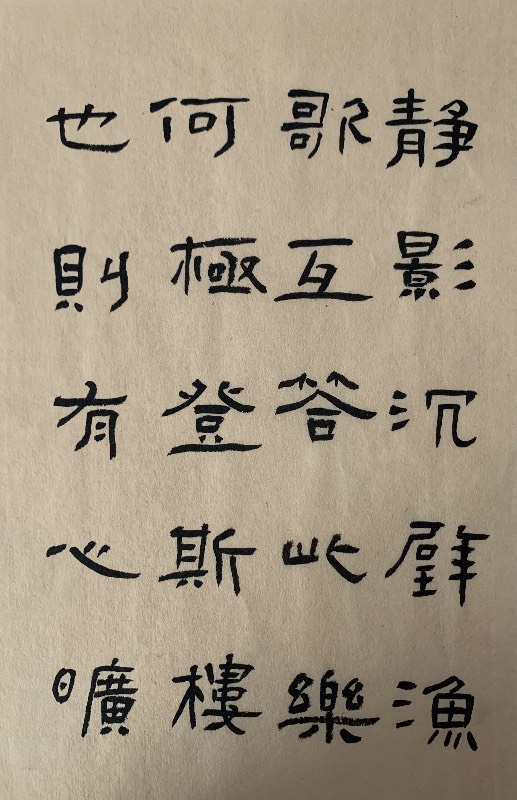 靜影沉璧漁
歌互答此樂
何極登斯樓
也則有心曠